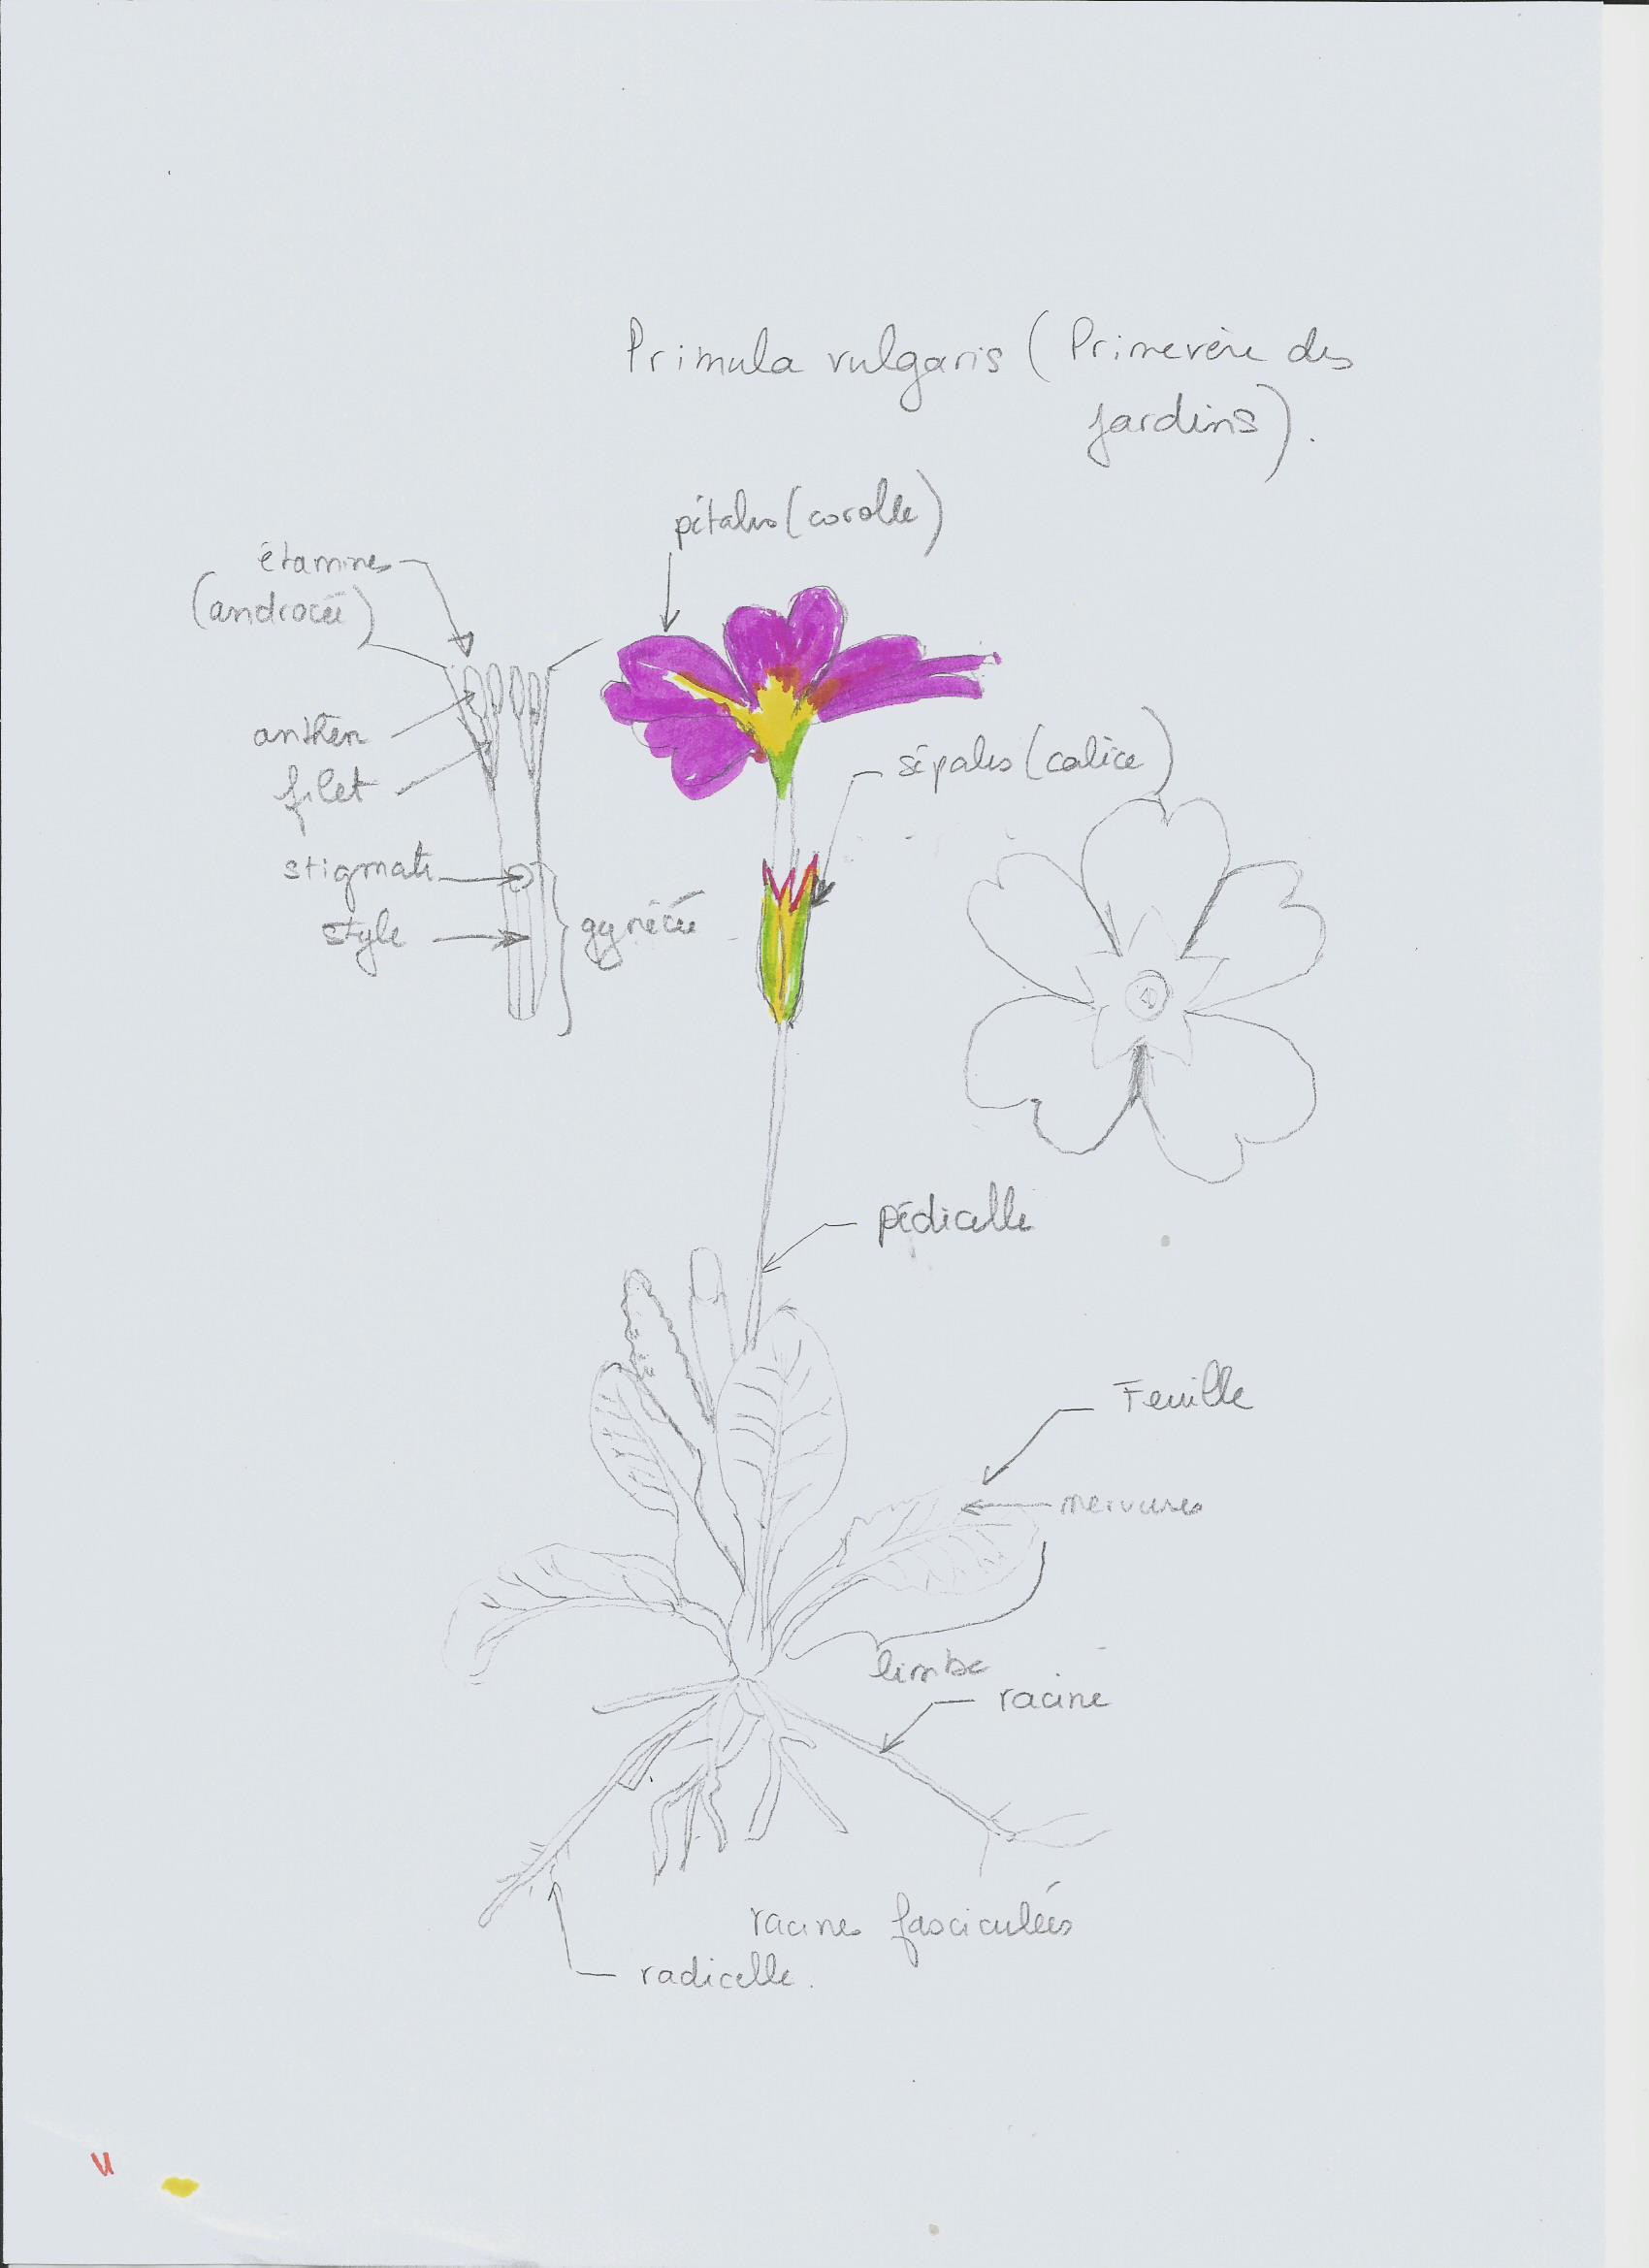 Primula vulgaris (Primevère des
jardins).
pétales (corolle)
étamines
(androcée)
anthère
filet
sépales (calice)
stigmate
style
gynécée
pédicelle
Feuille
nervures
limbe
racine
racines fasciculées
radicelle.